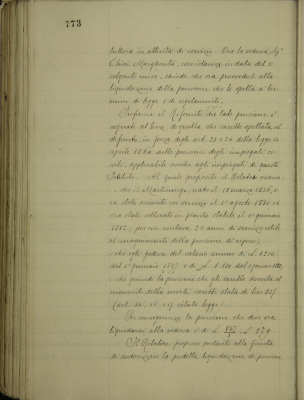 773
tuttora in attività di servizio. Ora la vedova, Sig.ª
Chiesi Margherita, con istanza in data del 5
volgente mese, chiede che sia proceduto alla
liquidazione della pensione che le spetta a ter-
mini di legge e di regolamenti.
Informa il Riferente che tale pensione è
uguale al terzo di quella che sarebbe spettata al
defunto, in forza degli art. 23 e 24 della legge 14
aprile 1864 sulle pensioni degli impiegati ci-
vili, applicabile anche agli impiegati di questo
Istituto. Al quale proposito il Relatore osserva:
che il Martinengo, nato il 18 marzo 1826, e-
ra stato assunto in servizio il 1º agosto 1880 ed
era stato collocato in pianta stabile il 1º gennaio
1882, per cui contava 24 anni di servizio utili
al conseguimento della pensione di riposo;
che egli godeva del salario annuo di £
dal 1º gennaio 1897 e di £
che quindi la pensione che gli sarebbe dovuta al
momento della morte sarebbe stata di lire 837
(art. 15, 16 e 17 citata legge).
Per conseguenza la pensione che deve ora
liquidarsi alla vedova è di £ 837/3 = £ 279.
Il Relatore propone pertanto alla Giunta
di autorizzare la predetta liquidazione di pensione